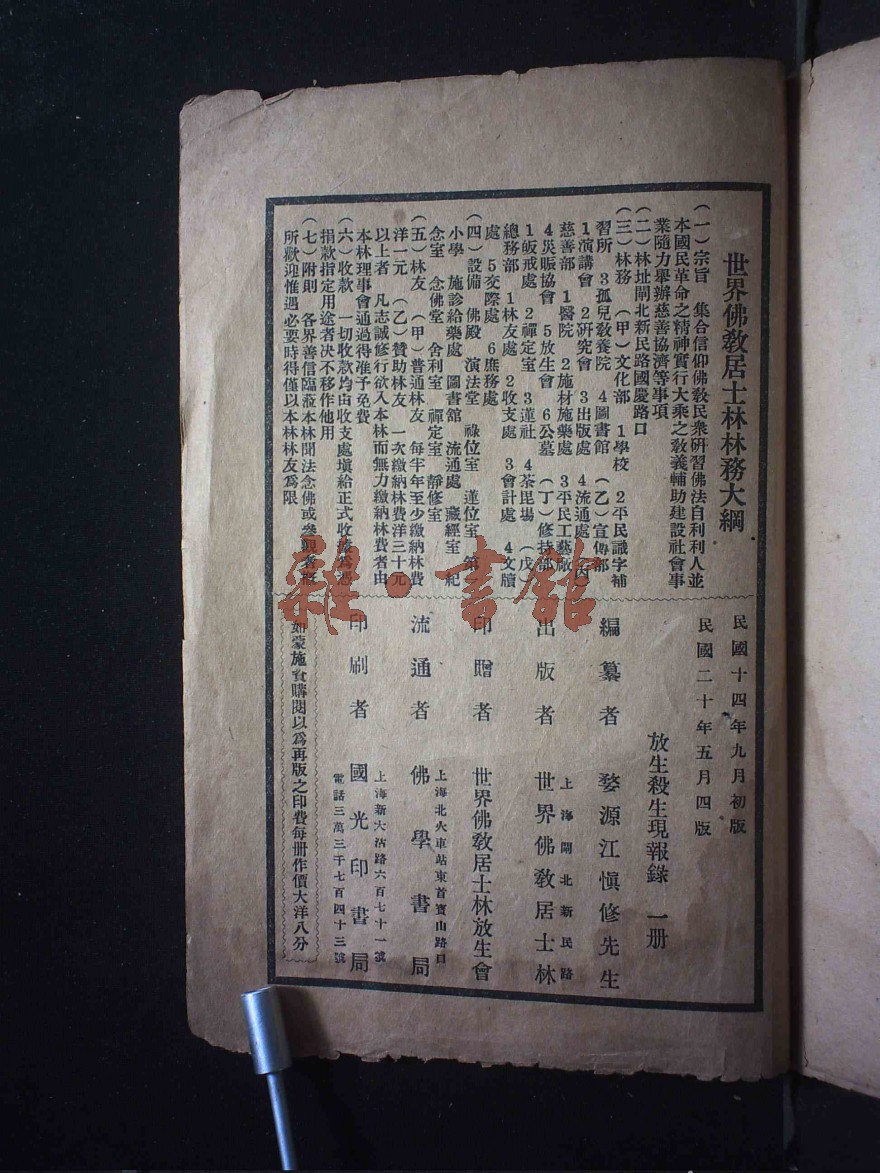 世界佛敎居士林林務大綱
（一）宗旨　集合信仰佛敎民衆硏習佛法自利利人並
本國民革命之精神實行大乘之敎義輔助建設社會事
業隨力舉辦慈善協濟等事項
（二）林址閘北新民路國慶路口
（三）林務　（甲）文化部　1學校　2平民識字補
習所　3孤兒敎養院　4圖書館　（乙）宣傳部
1演講會　2硏究會　3出版處　4流通處　（丙）
慈善部　1醫院　2施材施藥處　3平民工藝廠
4災賑協會　5放生會　6公墓　（丁）修持部
1皈戒處　2禪定室　3蓮社　4荼毘場　（戊）
總務部　1林友處　2收支處　3會計處　4文牘
處　5交際處　6庶務處
（四）設備　佛殿　演法堂　祿位室　蓮位室　第一
小學　施診給藥處　圖書館　流通處　藏經室　紀
念室　念佛堂　舍利室　禪定室　靜修室
（五）林友　（甲）普通林友　每半年至少繳納林費
洋一元　（乙）贊助林友　一次繳納林費洋三十元
以上者　凡志誠修行欲入本林而無力繳納林費者由
本林理事會通過得准予免費
（六）收款　一切收款均由收支處塡給正式收據爲憑
捐款指定用途者決不移作他用
（七）附則　各界善信臨蒞本林聞法念佛或參觀者概
所歡迎惟遇必要時得僅以本林林友爲限
民國十四年九月初版
民國二十年五月四版
放生殺生現報錄　一册
編纂者　婺源江愼修先生
上海閘北新民路
出版者　世界佛敎居士林
印贈者　世界佛敎居士林放生會
上海北火車站東首寶山路口
流通者　佛學書局
上海新大沽路六百七十一號
印刷者　國光印書局
電話三萬三千七百四十三號
如蒙施資購閱以爲再版之印費每册作價大洋八分
雜·書館